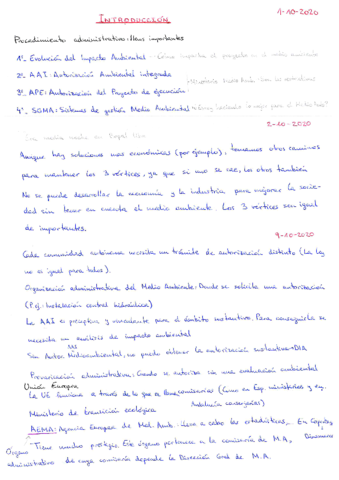 1-10-2020
INTRODUCCIÓN
Procedimiento administrativo: Items importantes
1º- Evaluación del Impacto Ambiental
2º- AAI: Autorización Ambiental integrada
3º- APE: Autorización del Proyecto de ejecución
4º- SGMA: Sistemas de gestión Medio Ambiental
2-10-2020
Aunque hay soluciones mas económicas (por ejemplo), tomamos otros caminos
para mantener los 3 vértices, ya que si uno se cae, los otros también
No se puede desarrollar la economía y la industria para mejorar la socie-
dad sin tener en cuenta el medio ambiente. Los 3 vértices son igual
de importantes.
9-10-2020
Cada comunidad autónoma necesita un trámite de autorización distinto (La ley
no es igual para todos).
Organización administrativa del Medio Ambiente: Donde se solicita una autorización
(P.ej: Instalación central hidráulica)
La AAI es preceptiva y vinculante para el ámbito sustantivo. Para conseguirla se
necesita un análisis de impacto ambiental
Sin Autor. Medioambiental, no puedo obtener la autorización sustantiva
Prevaricación administrativa: Cuando se autoriza sin una evaluación ambiental
Unión Europea
La UE funciona a través de lo que se llama comisarías (Como en Esp. ministerios y en
Andalucía consejerías)
Ministerio de transición ecológica
AEMA: Agencia Europea de Med. Amb. lleva a cabo las estadísticas,
Dinamarca
Tiene mucho prestigio. Este órgano pertenece a la comisaría de M.A.,
Órgano administrativo de cuya comisaría depende la Dirección Gral de M.A.